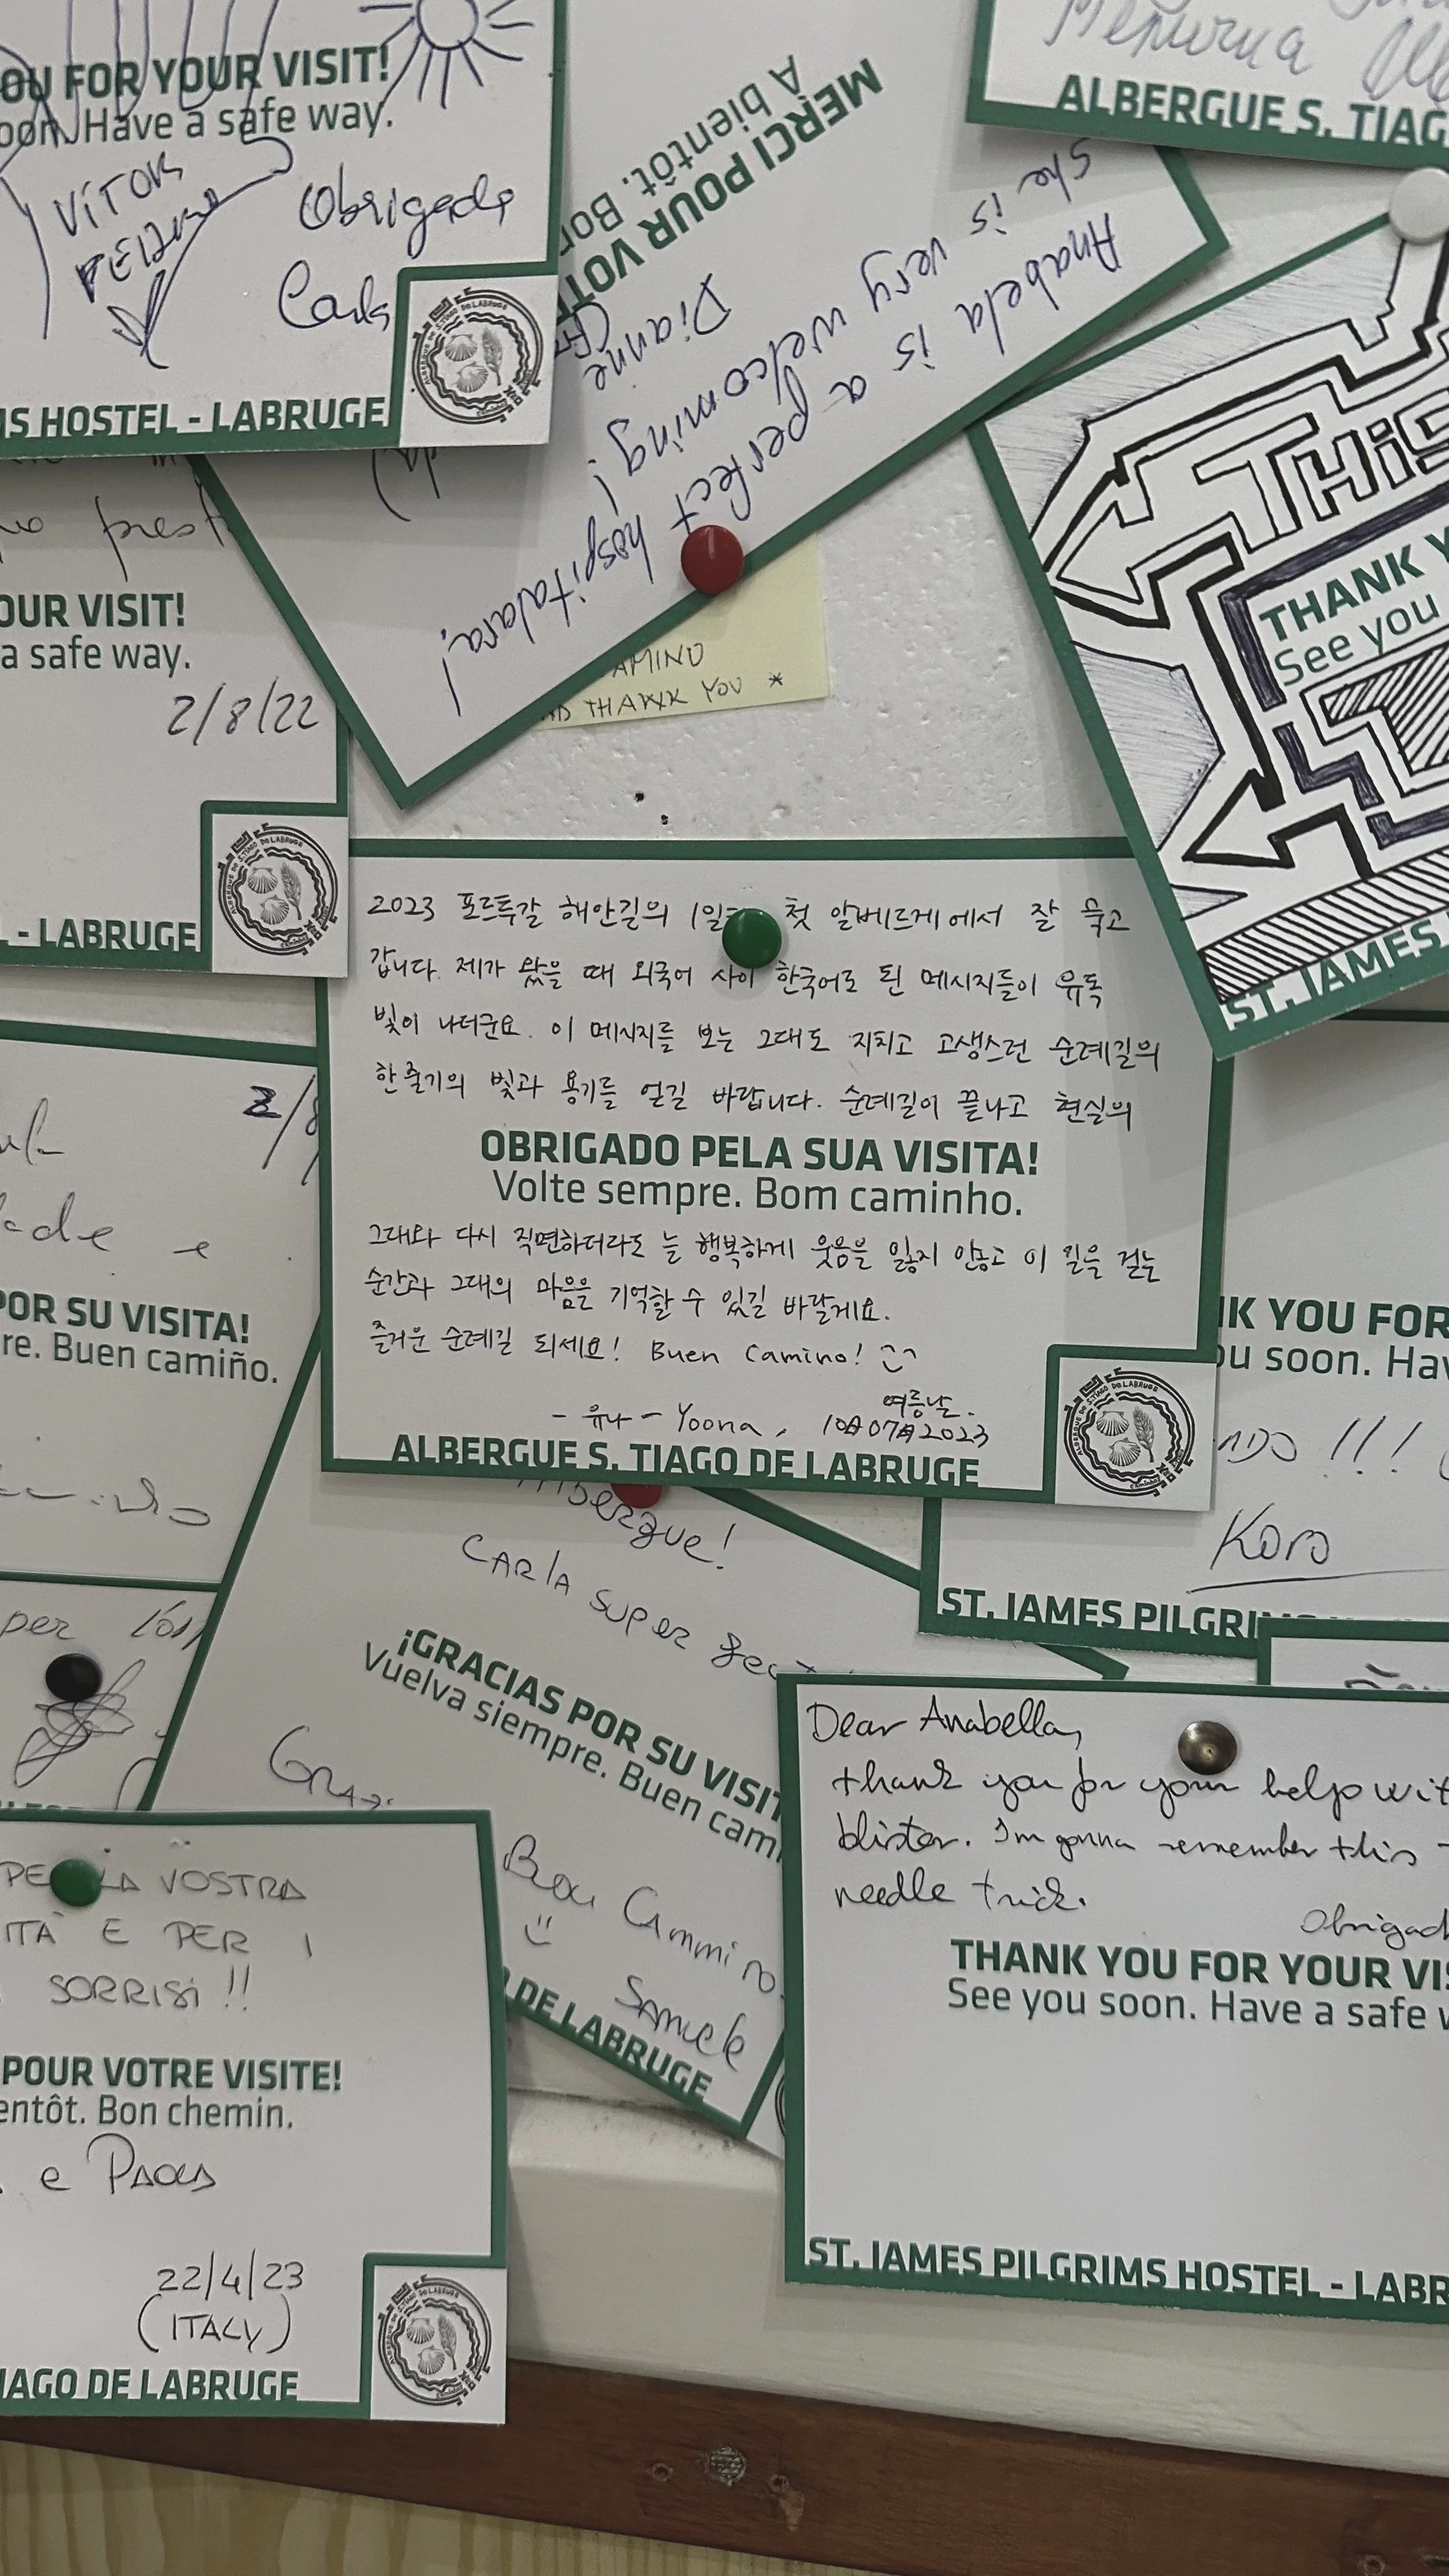 OU FOR YOUR VISIT!
oon. Have a safe way.
VÍTOR
Obrigada
IS HOSTEL - LABRUGE
MERCI POUR VOT
A bientôt. Bon
Dianne
She is very welcoming!
Anabela is a perfect hospitalara!
ALBERGUE S. TIAG
AMINO
THANK YOU *
THIS
THANK Y
See you
ST. JAMES
prest
OUR VISIT!
a safe way.
2/8/22
- LABRUGE
2023 포르투갈 해안길의 1일 첫 알베르게에서 잘 묵고
갑니다. 제가 왔을 때 외국어 사이 한국어로 된 메시지들이 유독
빛이 나더군요. 이 메시지를 보는 그대도 지치고 고생스런 순례길의
한줄기의 빛과 용기를 얻길 바랍니다. 순례길이 끝나고 현실의
OBRIGADO PELA SUA VISITA!
Volte sempre. Bom caminho.
그대와 다시 직면하더라도 늘 행복하게 웃음을 잃지 않고 이 길을 걷는
순간과 그대의 마음을 기억할 수 있길 바랄게요.
즐거운 순례길 되세요! Buen Camino!
여름날.
- 유나 - Yoona, 10일 07월 2023
ALBERGUE S. TIAGO DE LABRUGE
ade e
POR SU VISITA!
re. Buen camiño.
IK YOU FOR
ou soon. Hav
NDO !!!
Koro
ST. JAMES PILGRI
per
lbergue!
CARLA SUPER
¡GRACIAS POR SU VISIT
Vuelva siempre. Buen cam
Buon Cammino
DE LABRUGE
PE LA VOSTRA
ITÀ E PER I
SORRISI !!
POUR VOTRE VISITE!
entôt. Bon chemin.
e PAOLA
22/4/23
(ITALY)
IAGO DE LABRUGE
Dear Anabella,
thank you for your help wit
blister. I'm gonna remember this
needle trick.
Obrigad
THANK YOU FOR YOUR VIS
See you soon. Have a safe w
ST. JAMES PILGRIMS HOSTEL - LABR